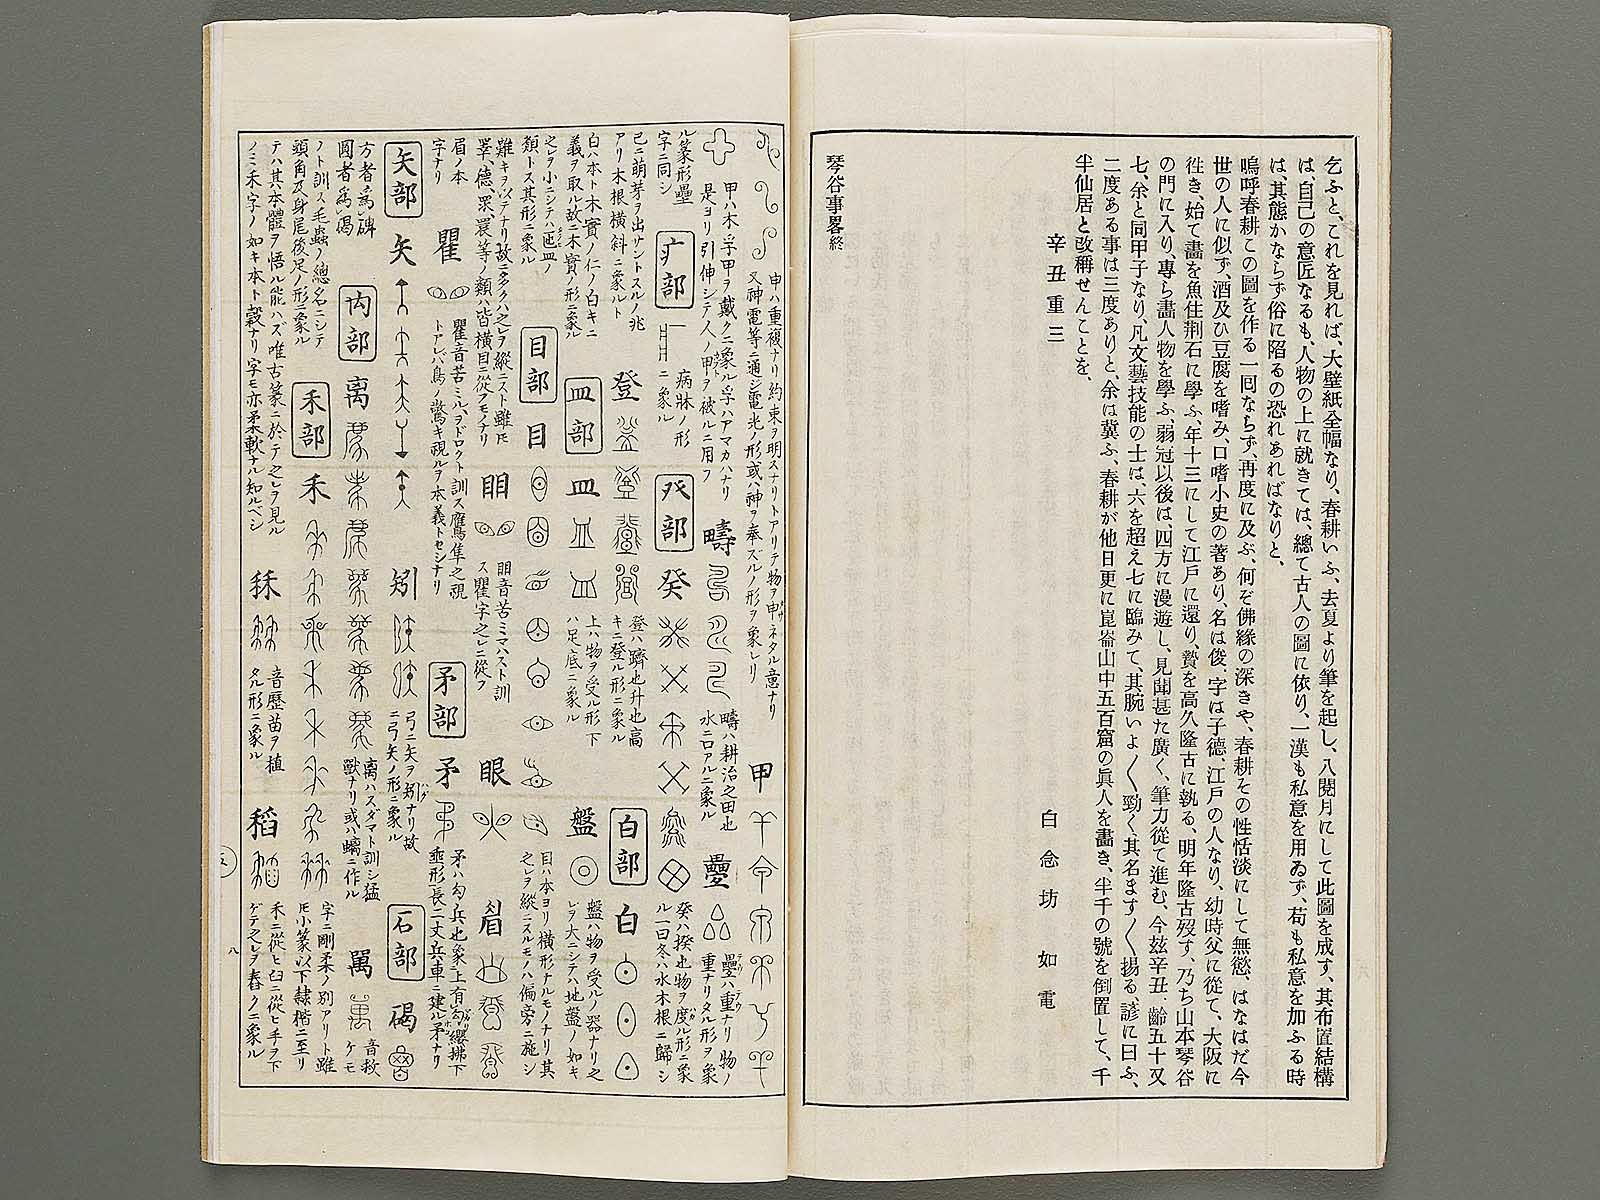 乞ふと、これを見れば、大壁紙全幅なり、春耕いふ、去夏より筆を起し、八閲月にして此圖を成す、其布置結構
は、自己の意匠なるも、人物の上に就きては、總て古人の圖に依り、一漢も私意を用ゐず、苟も私意を加ふる時
は、其態かならず俗に陷るの恐れあればなりと、
嗚呼春耕この圖を作る一回ならず、再度に及ぶ、何ぞ佛緣の深きや、春耕その性恬淡にして無慾、はなはだ今
世の人に似ず、酒及ひ豆腐を嗜み、口嗜小史の著あり、名は俊、字は子德、江戸の人なり、幼時父に從て、大阪に
徃き、始て畵を魚住荆石に學ふ、年十三にして江戸に還り、贄を高久隆古に執る、明年隆古歿す、乃ち山本琴谷
の門に入り、專ら畵人物を學ふ、弱冠以後は、四方に漫遊し、見聞甚た廣く、筆力從て進む、今玆辛丑、齡五十又
七、余と同甲子なり、凡文藝技能の士は、六を超え七に臨みて、其腕いよ〱勁く、其名ます〱揚る、諺に曰ふ、
二度ある事は三度ありと、余は冀ふ、春耕が他日更に崑崙山中五百窟の眞人を畵き、半千の號を倒置して、千
半仙居と改稱せんことを、
辛丑重三
白念坊 如電
琴谷事畧終
申ハ重複ナリ約束ヲ明スナリトアリテ物ヲ申ネタル意ナリ
又神電等ニ通ジ電光ノ形或ハ神ヲ奉ズルノ形ヲ象レリ
甲
甲ハ木孚甲ヲ戴クニ象ル孚ハアマカハナリ
是ヨリ引伸シテ人ノ甲ヲ破ルニ用フ
疇
疇ハ耕治之田也
水ニ口アルニ象ル
疊
疊ハ重ナリ物ノ
重ナリタル形ヲ象
ル篆形疊
字ニ同シ
疒部
病牀ノ形
ニ象ル
癶部
癸
癸ハ揆也物ヲ度ル形ニ象
ル一曰冬ハ水木根ニ歸シ
已ニ萌芽ヲ出サントスルノ兆
アリ木根横斜ニ象ルト
登
登ハ躋也升也高
キニ登ル形ニ象ル
白部
白
白ハ本ト木實ノ仁ノ白キニ
義ヲ取ル故ニ木實ノ形ニ象ル
皿部
皿
上ハ物ヲ受ル形下
ハ足底ニ象ル
盤
盤ハ物ヲ受ルノ器ナリ之
レヲ大ニシテハ地盤ノ如キ
之レヲ小ニシテハ匜皿ノ
類トス其形ニ象ル
目部
目
目ハ本ヨリ横形ナルモノナリ其
之レヲ縱ニスルモノハ偏旁ニ施シ
難キヲ以テナリ故ニ多クハ之レヲ縱ニスト雖モ
睪、德、眾、睘等ノ類ハ皆横目ニ從フモノナリ
䀠
䀠音苦ミマハスト訓
ス瞿字之レニ從フ
眼
眉
眉ノ本
字ナリ
瞿
瞿音苦ミル、ヲドロクト訓ス鷹隼之視
トアレバ鳥ノ驚キ視ルヲ本義トセシナリ
矛部
矛
矛ハ勾兵也象上有勾纓拂下
垂形長二丈兵車ニ建ル矛ナリ
矢部
矢
矧
弓ニ矢ヲ矧ナリ故
ニ弓矢ノ形ニ象ル
石部
碣
方者爲碑
圓者爲碣
禸部
离
离ハスダマト訓シ猛
獸ナリ或ハ螭ニ作ル
萬
音救
ケモ
ノト訓ス毛蟲ノ總名ニシテ
頭角及身尾後足ノ形ニ象ル
禾部
禾
字ニ剛柔ノ別アリト雖
モ小篆以下隸楷ニ至リ
テハ其本體ヲ悟ル能ハズ唯古篆ニ於テ之レヲ見ル
ノミ禾字ノ如キ本ト穀ナリ字モ亦柔軟ナル知ルベシ
秝
音歷苗ヲ植
タル形ニ象ル
稻
禾ニ從ヒ臼ニ從ヒ手ヲ下
ゲテ之レヲ舂クニ象ル
八